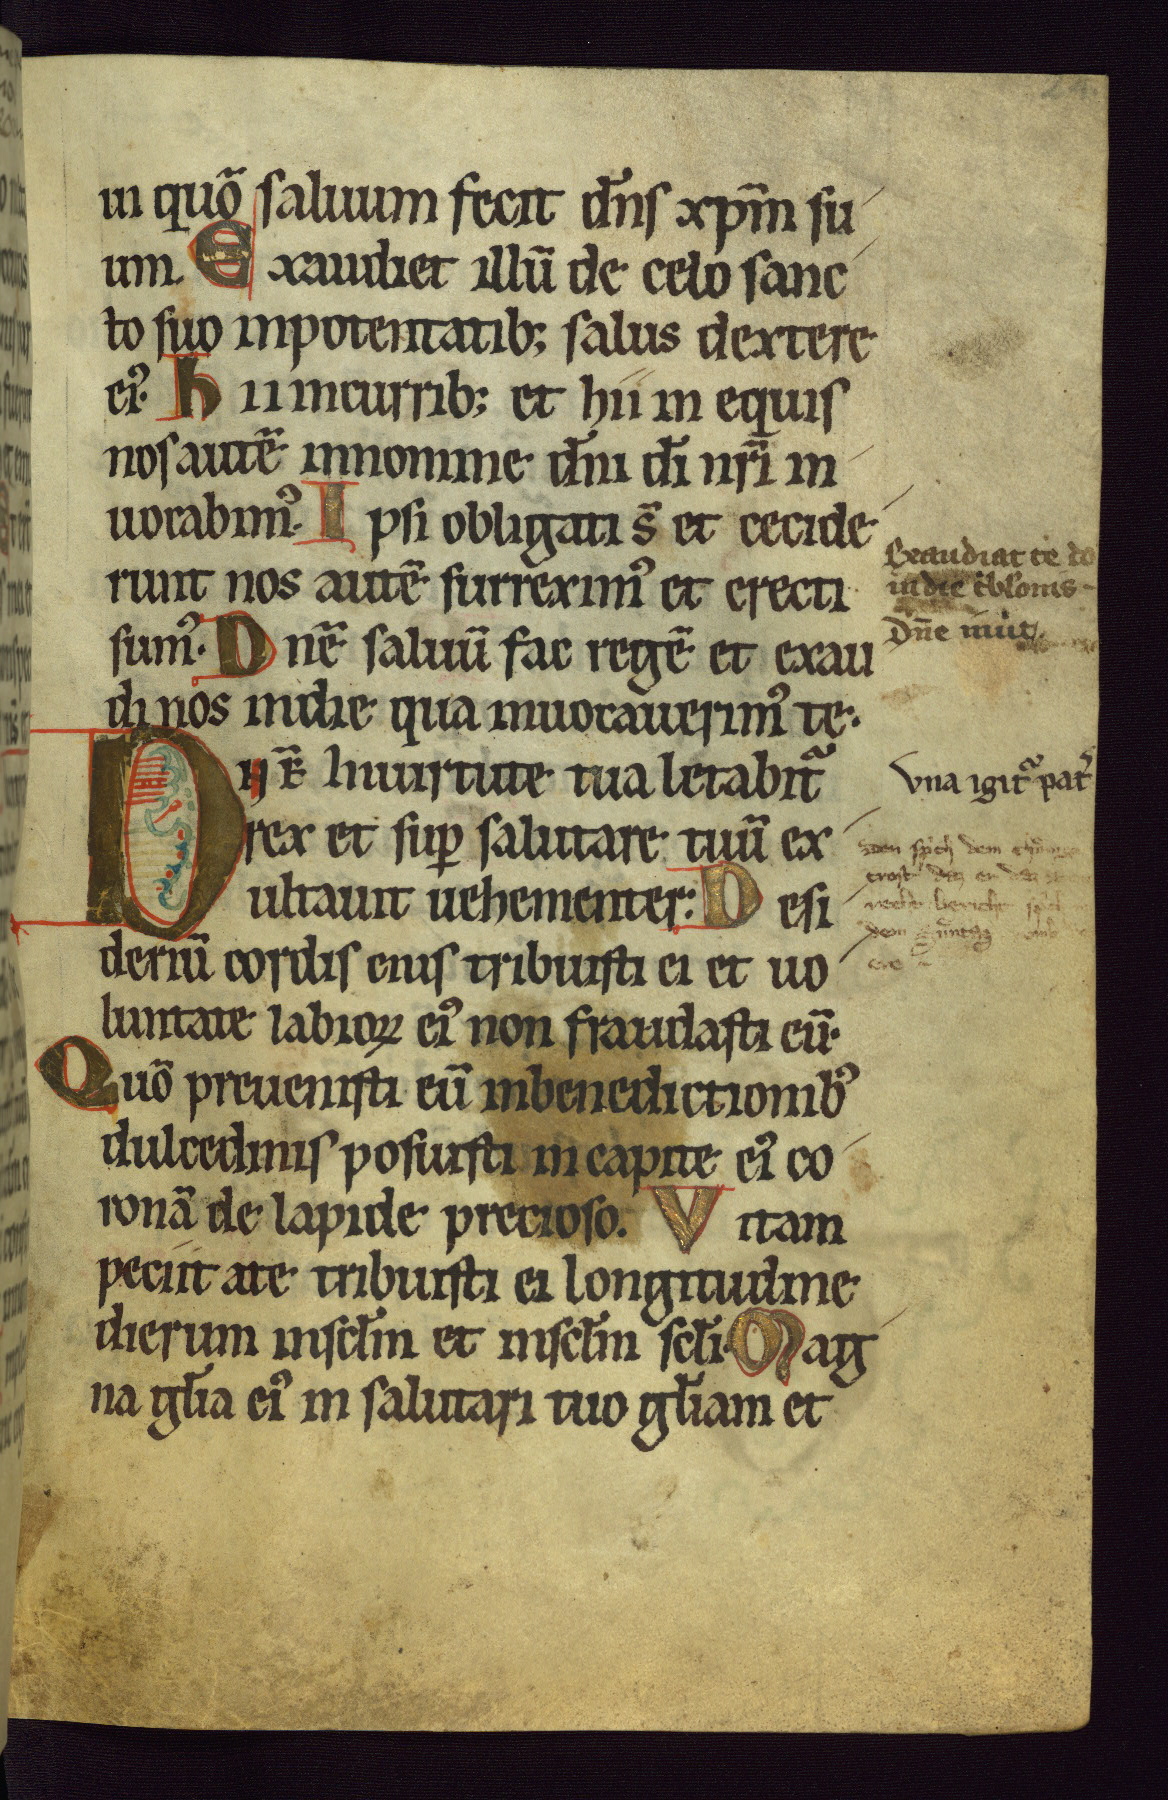 ui quõ saluum fecit dñs xp̃m su
um. Exaudiet illũ de celo sanc
to suo inpotentatib; salus dextere
eiꝰ. hii incurrib; et hii in equis
nos autẽ innomine dñi dĩ nr̃i in
uocabimꝰ. Ipsi obligati s̃ et cecide
runt nos autẽ surreximꝰ et erecti
sumꝰ. Dnẽ saluũ fac regẽ et exau
di nos indie qua inuocauerimꝰ te.
Dnẽ Inuirtute tua letabit᷑
rex et suꝑ salutare tuũ ex
ultauit uehementer: Desi
deriũ cordis eius tribuisti ei et uo
luntate labioꝝ eiꝰ non fraudasti eũ.
Quõ preuenisti eũ inbenedictionibꝰ
dulcedinis posuisti in capite eiꝰ co
ronã de lapide precioso. Vitam
peciit ate tribuisti ei longitudine
dierum insclm̃ et insclm̃ scli̇. Mag
na glĩa eiꝰ in salutari tuo glĩam et
Exaudiat te do
in die tͥblonis
Dñe inuit
Vna igit᷑ patͥs
dem